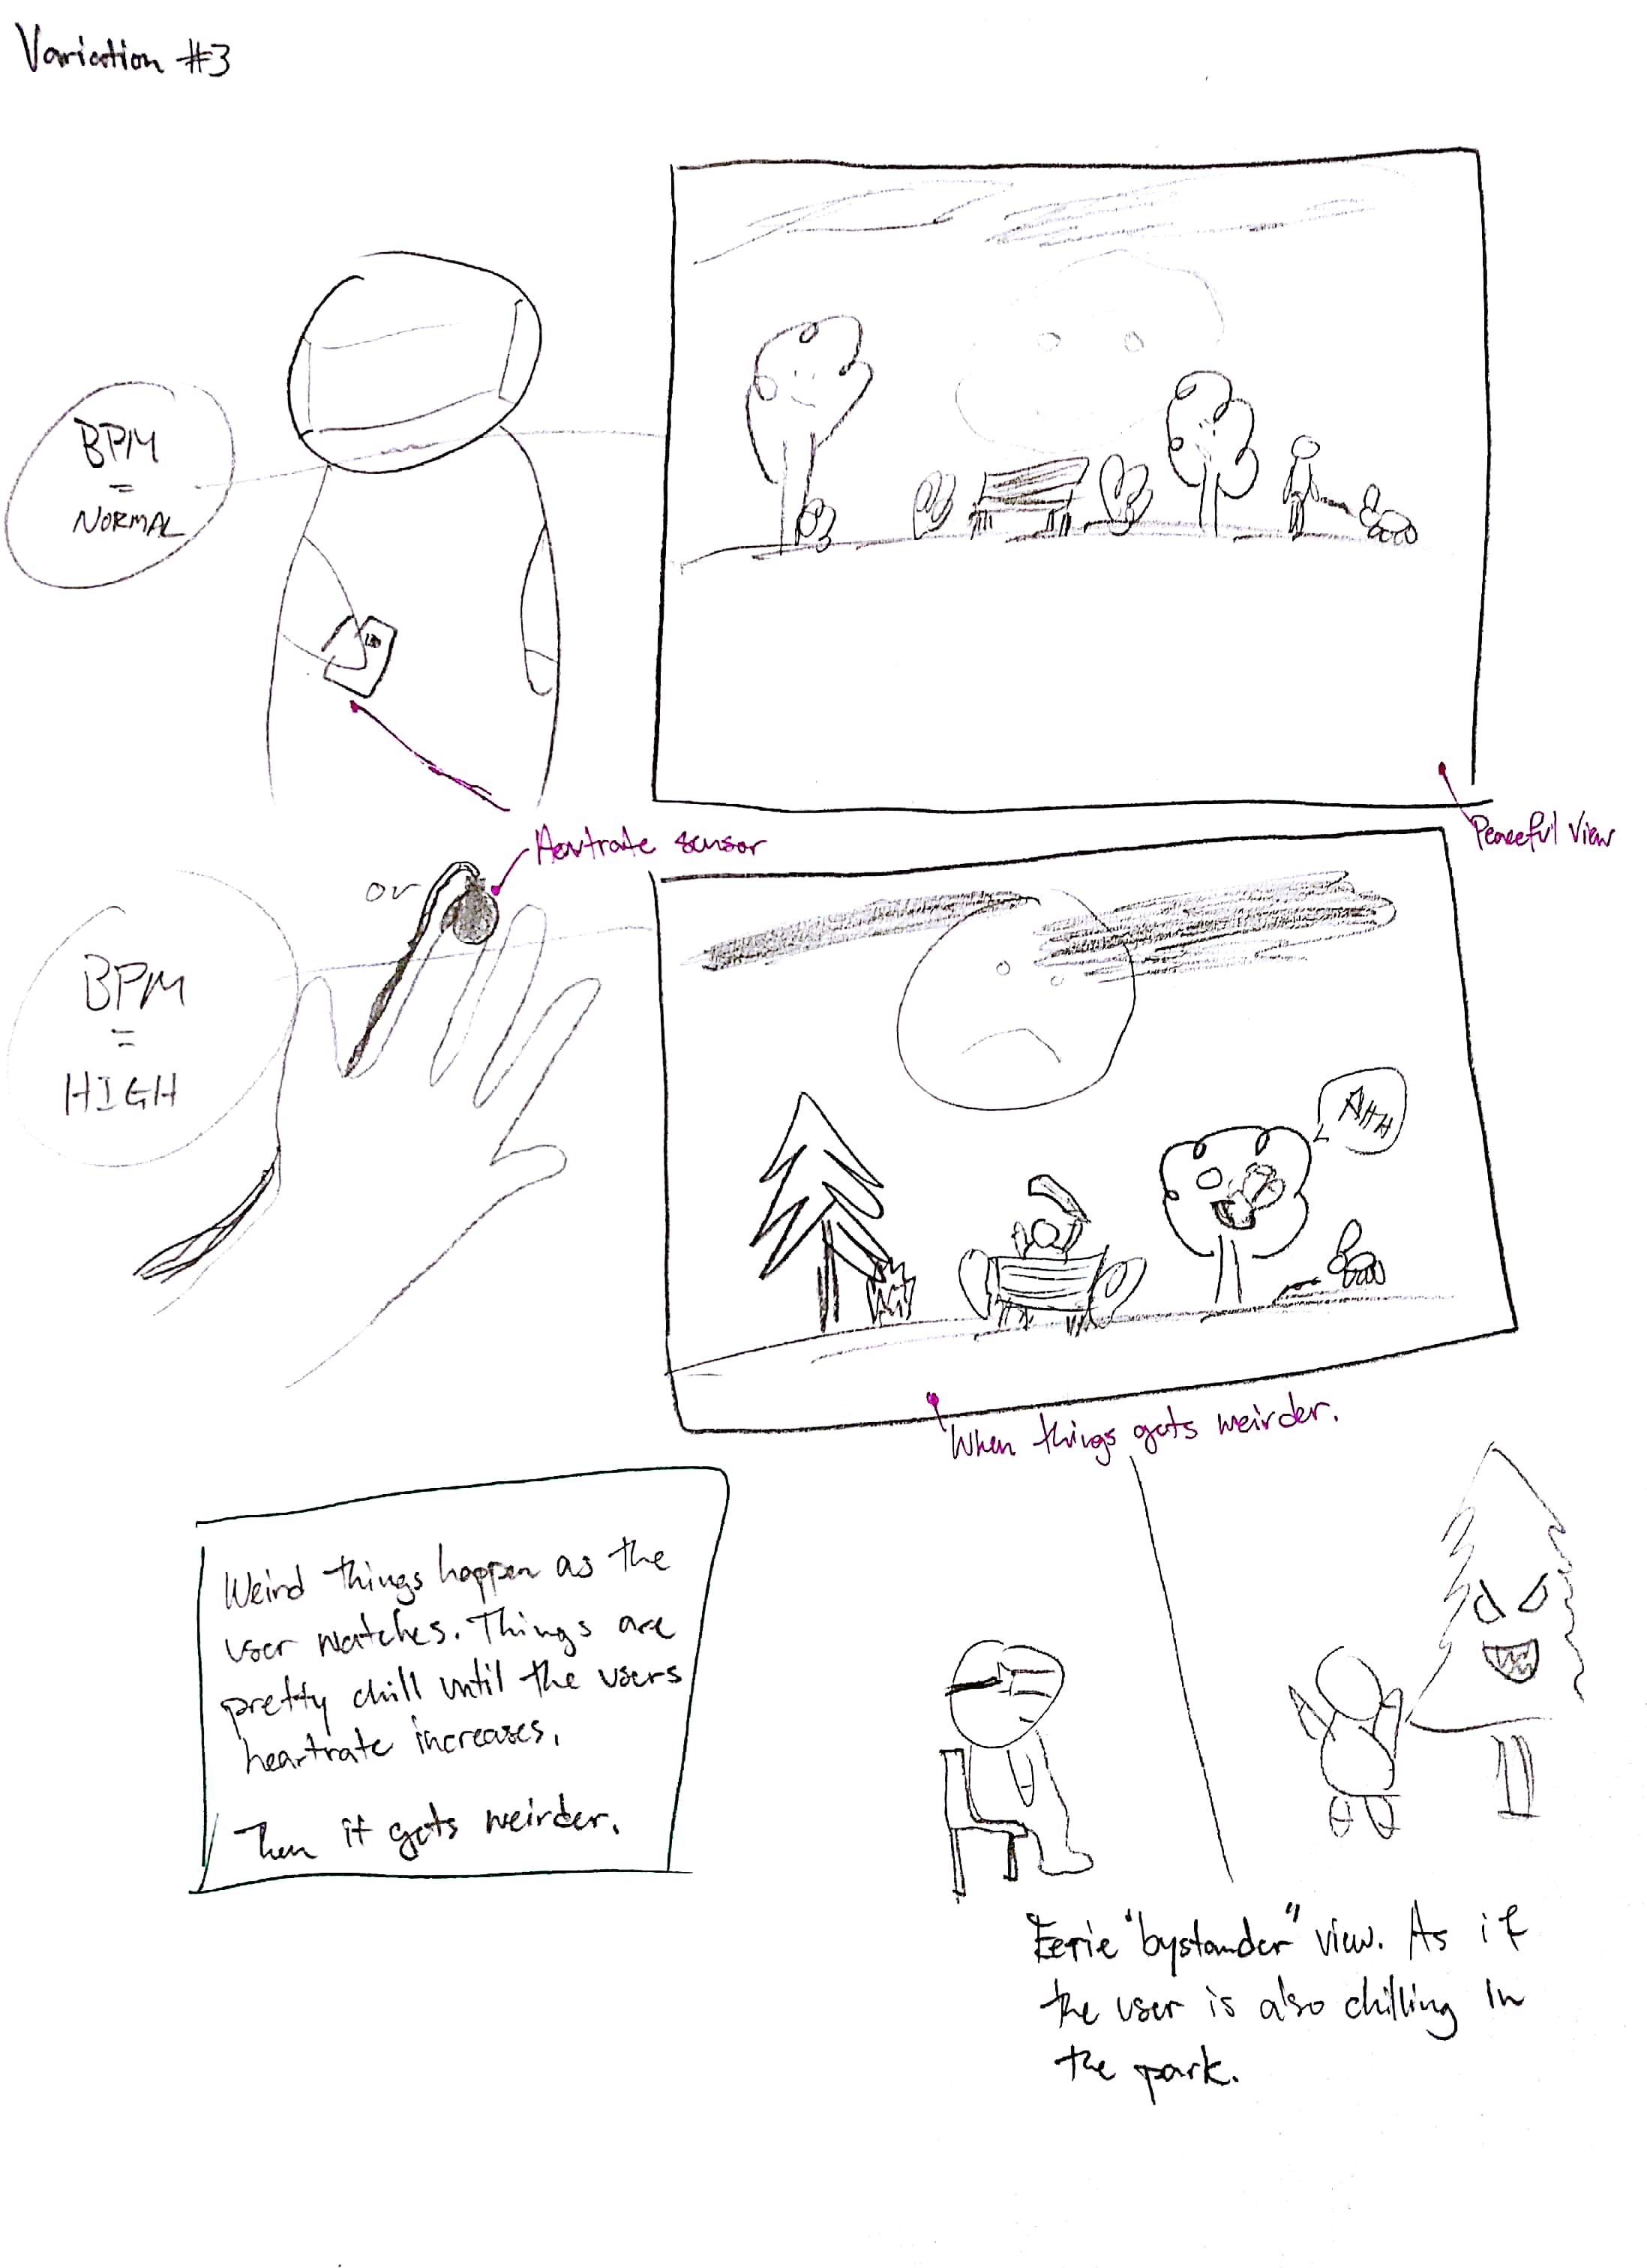 Variation #3
BPM
=
NORMAL
Peaceful View
Heartrate sensor
or
BPM
=
HIGH
AHH
When things gets weirder.
Weird things happen as the
user watches. Things are
pretty chill until the users
heartrate increases.
Then it gets weirder.
Eerie "bystander" view. As if
the user is also chilling in
the park.